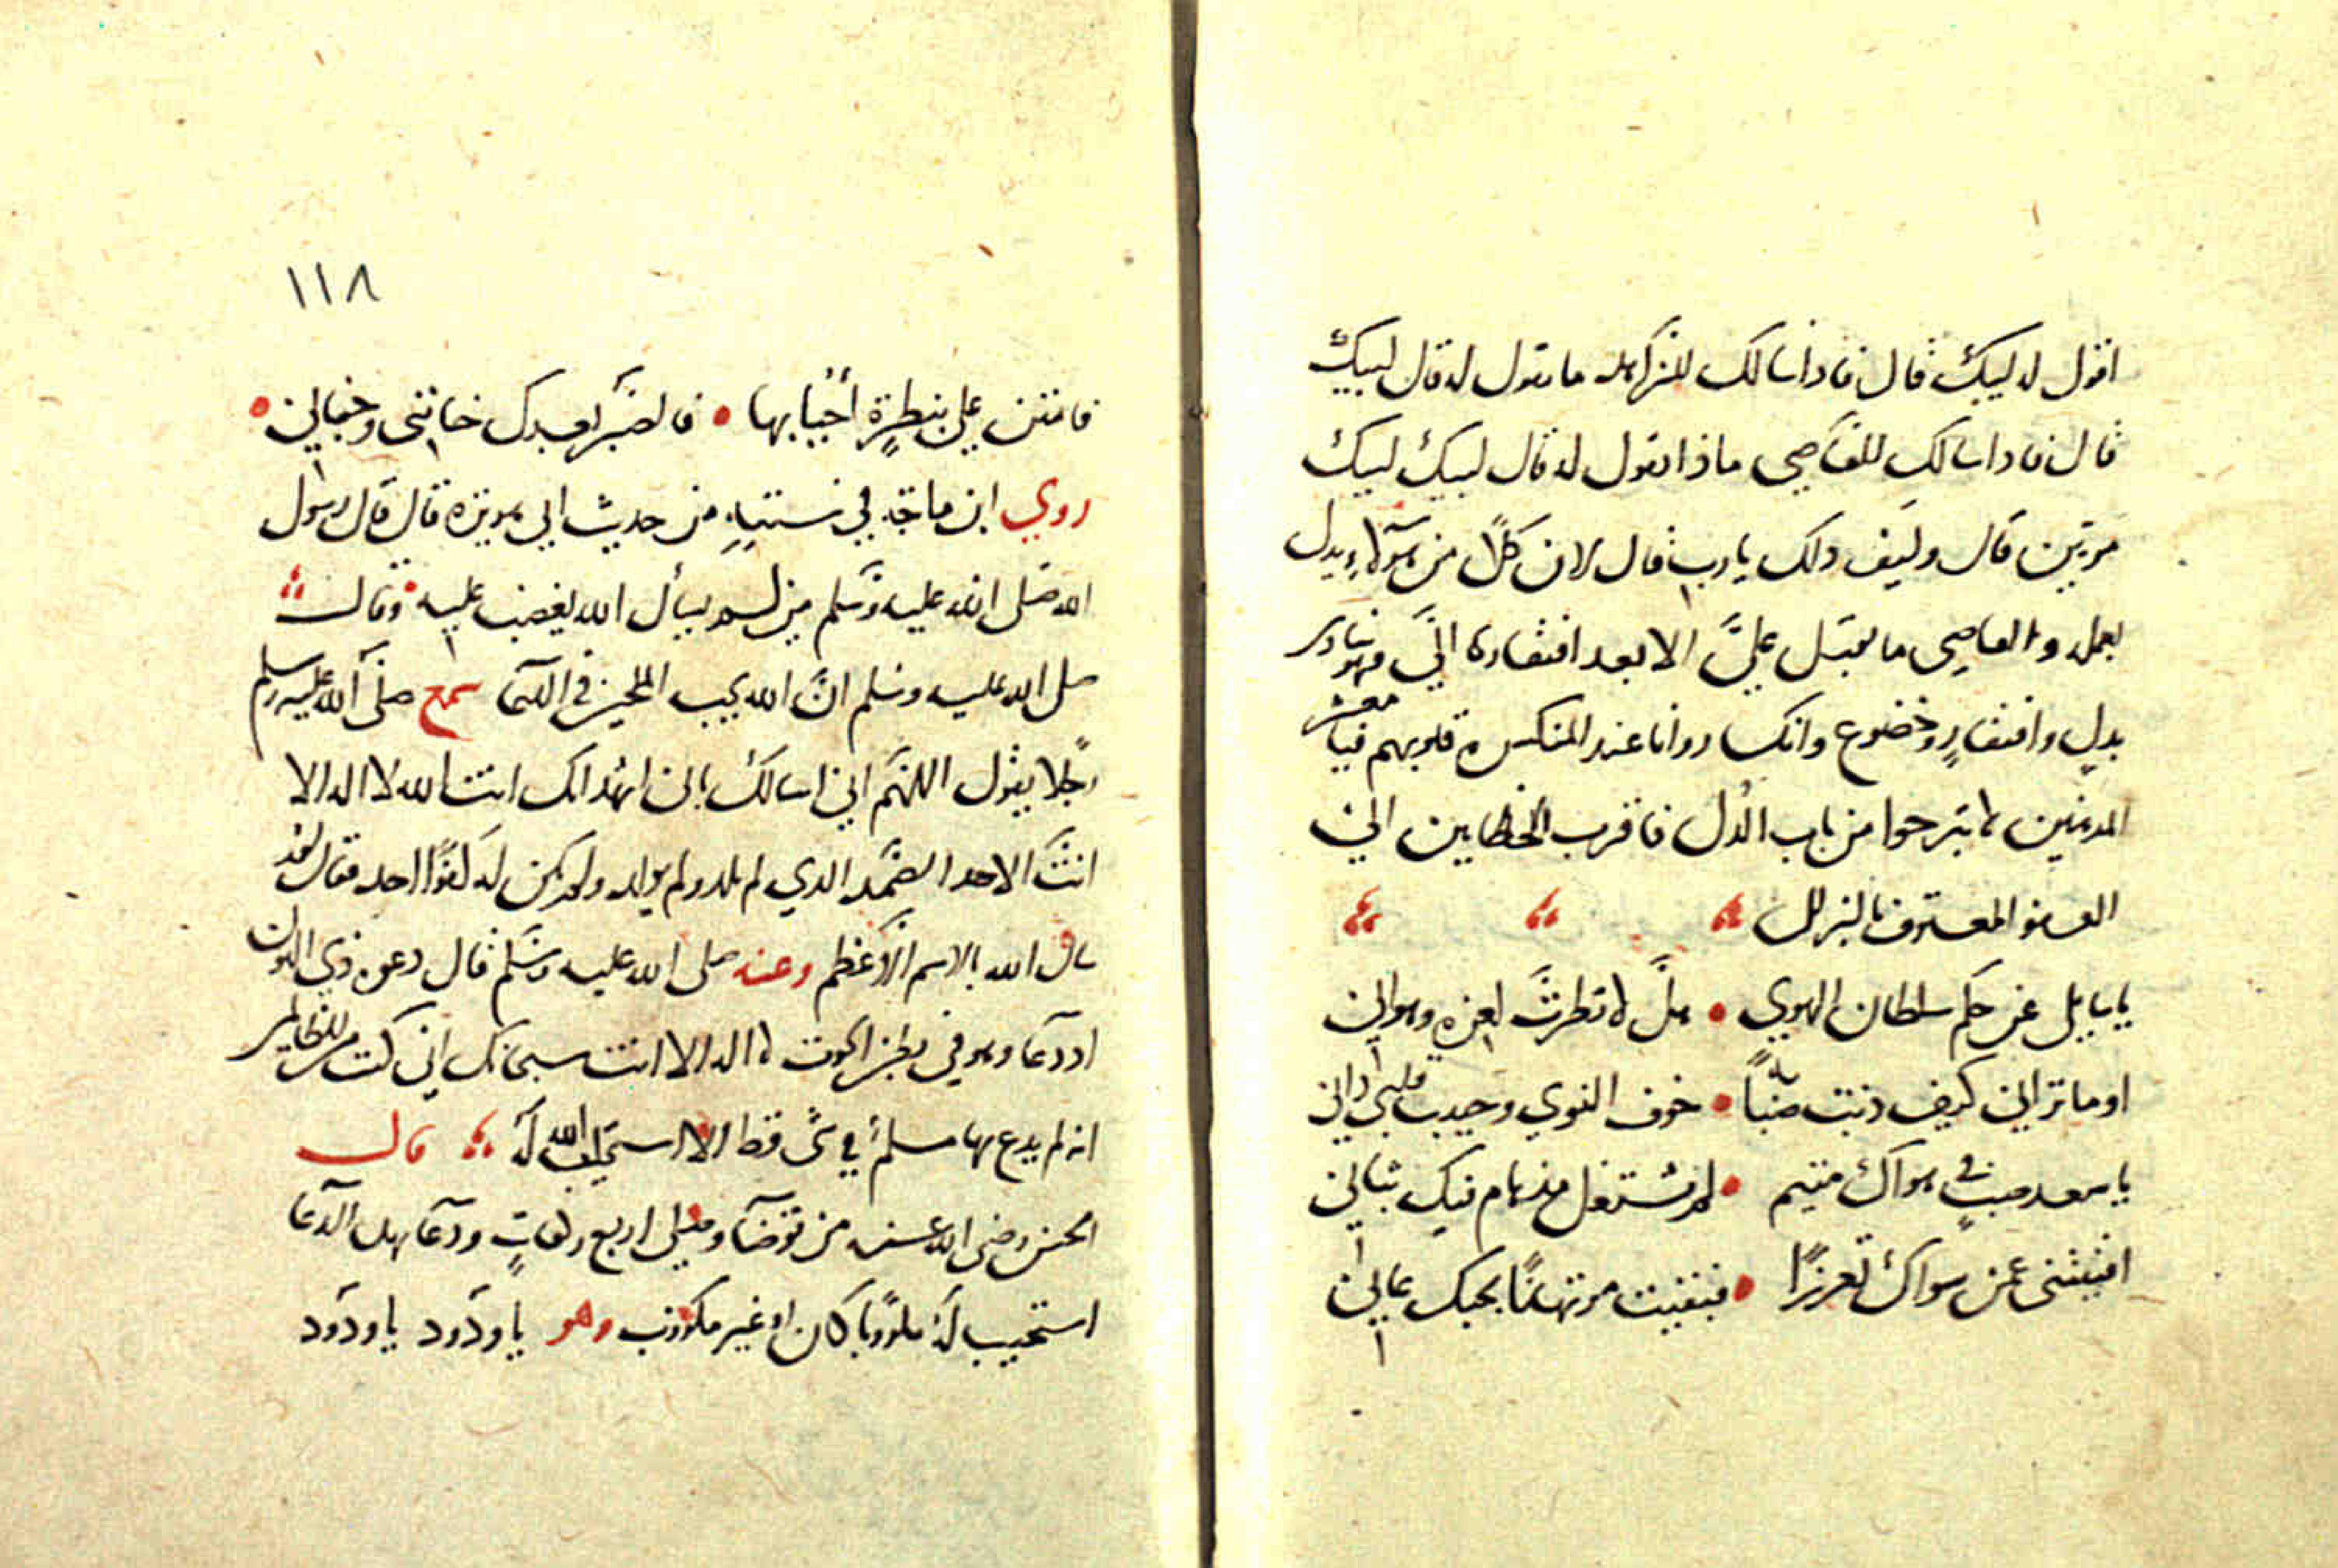 اقول له لبيك قال فاذا سالك للزاهد ما تقول له قال لبيك
قال فاذا سالك للعاصي ماذا تقول له قال لبيك لبيك
مرتين قال وكيف ذلك يا رب قال لان كلا من هولاء يدل
بعمله والعاصي ما يقبل عليَّ الا بعد افتقاره اليَّ فهو ينادي
بذل وافتقار وخضوع وانكسار وانا عند المنكسره قلوبهم فيا معشر
المذنبين لا تبرحوا من باب الذل فما اقرب الخطايين الى
العفو المعترف بالزلل
يا سايل عن حكم سلطان الهوي • هلَّا نظرت لعزه وهواني
او ما تراني كيف ذبت صبا • خوف النوي وجيب قلبي داني
يا سعد صب في هواك متيم • لم يشتغل مذ هام فيك بثاني
افنيتني عن سواك تعززا • فبقيت مرتهنا بحبك عاني
١١٨
فامنن علي بنظرة احيا بها • فالصبر بعدك خانني وجفاني •
روي ابن ماجة في سننه من حديث ابي هريرة قال قال رسول
الله صلى الله عليه وسلم من لم يسأل الله يغضب عليه • وقال
صلى الله عليه وسلم انَّ الله يحب الملحين في الدعآ سمع صلى الله عليه وسلم
رجلا يقول اللهم اني اسالك باني اشهد انك انت الله لا اله الا
انت الاحد الصمد الذي لم يلد ولم يولد ولم يكن له كفوًا احد فقال لقد
سال الله بالاسم الاعظم وعنه صلى الله عليه وسلم قال دعوه ذي النون
اذ دعا وهو في بطن الحوت لا اله الا انت سبحانك اني كنت من الظالمين
انه لم يدع بها مسلم في شى قط الا استجاب الله له قال
الحسن رضى الله عنه من توضآ وصلى اربع ركعات ودعا بهذا الدعا
استجيب له مكروبا كان او غير مكروب وهو يا ودود يا ودود